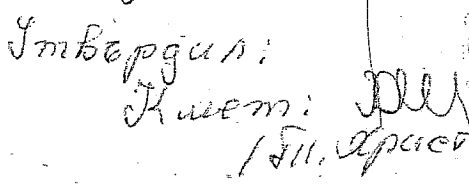 Утвърдил:
Кмет:
/ Гп. Христ